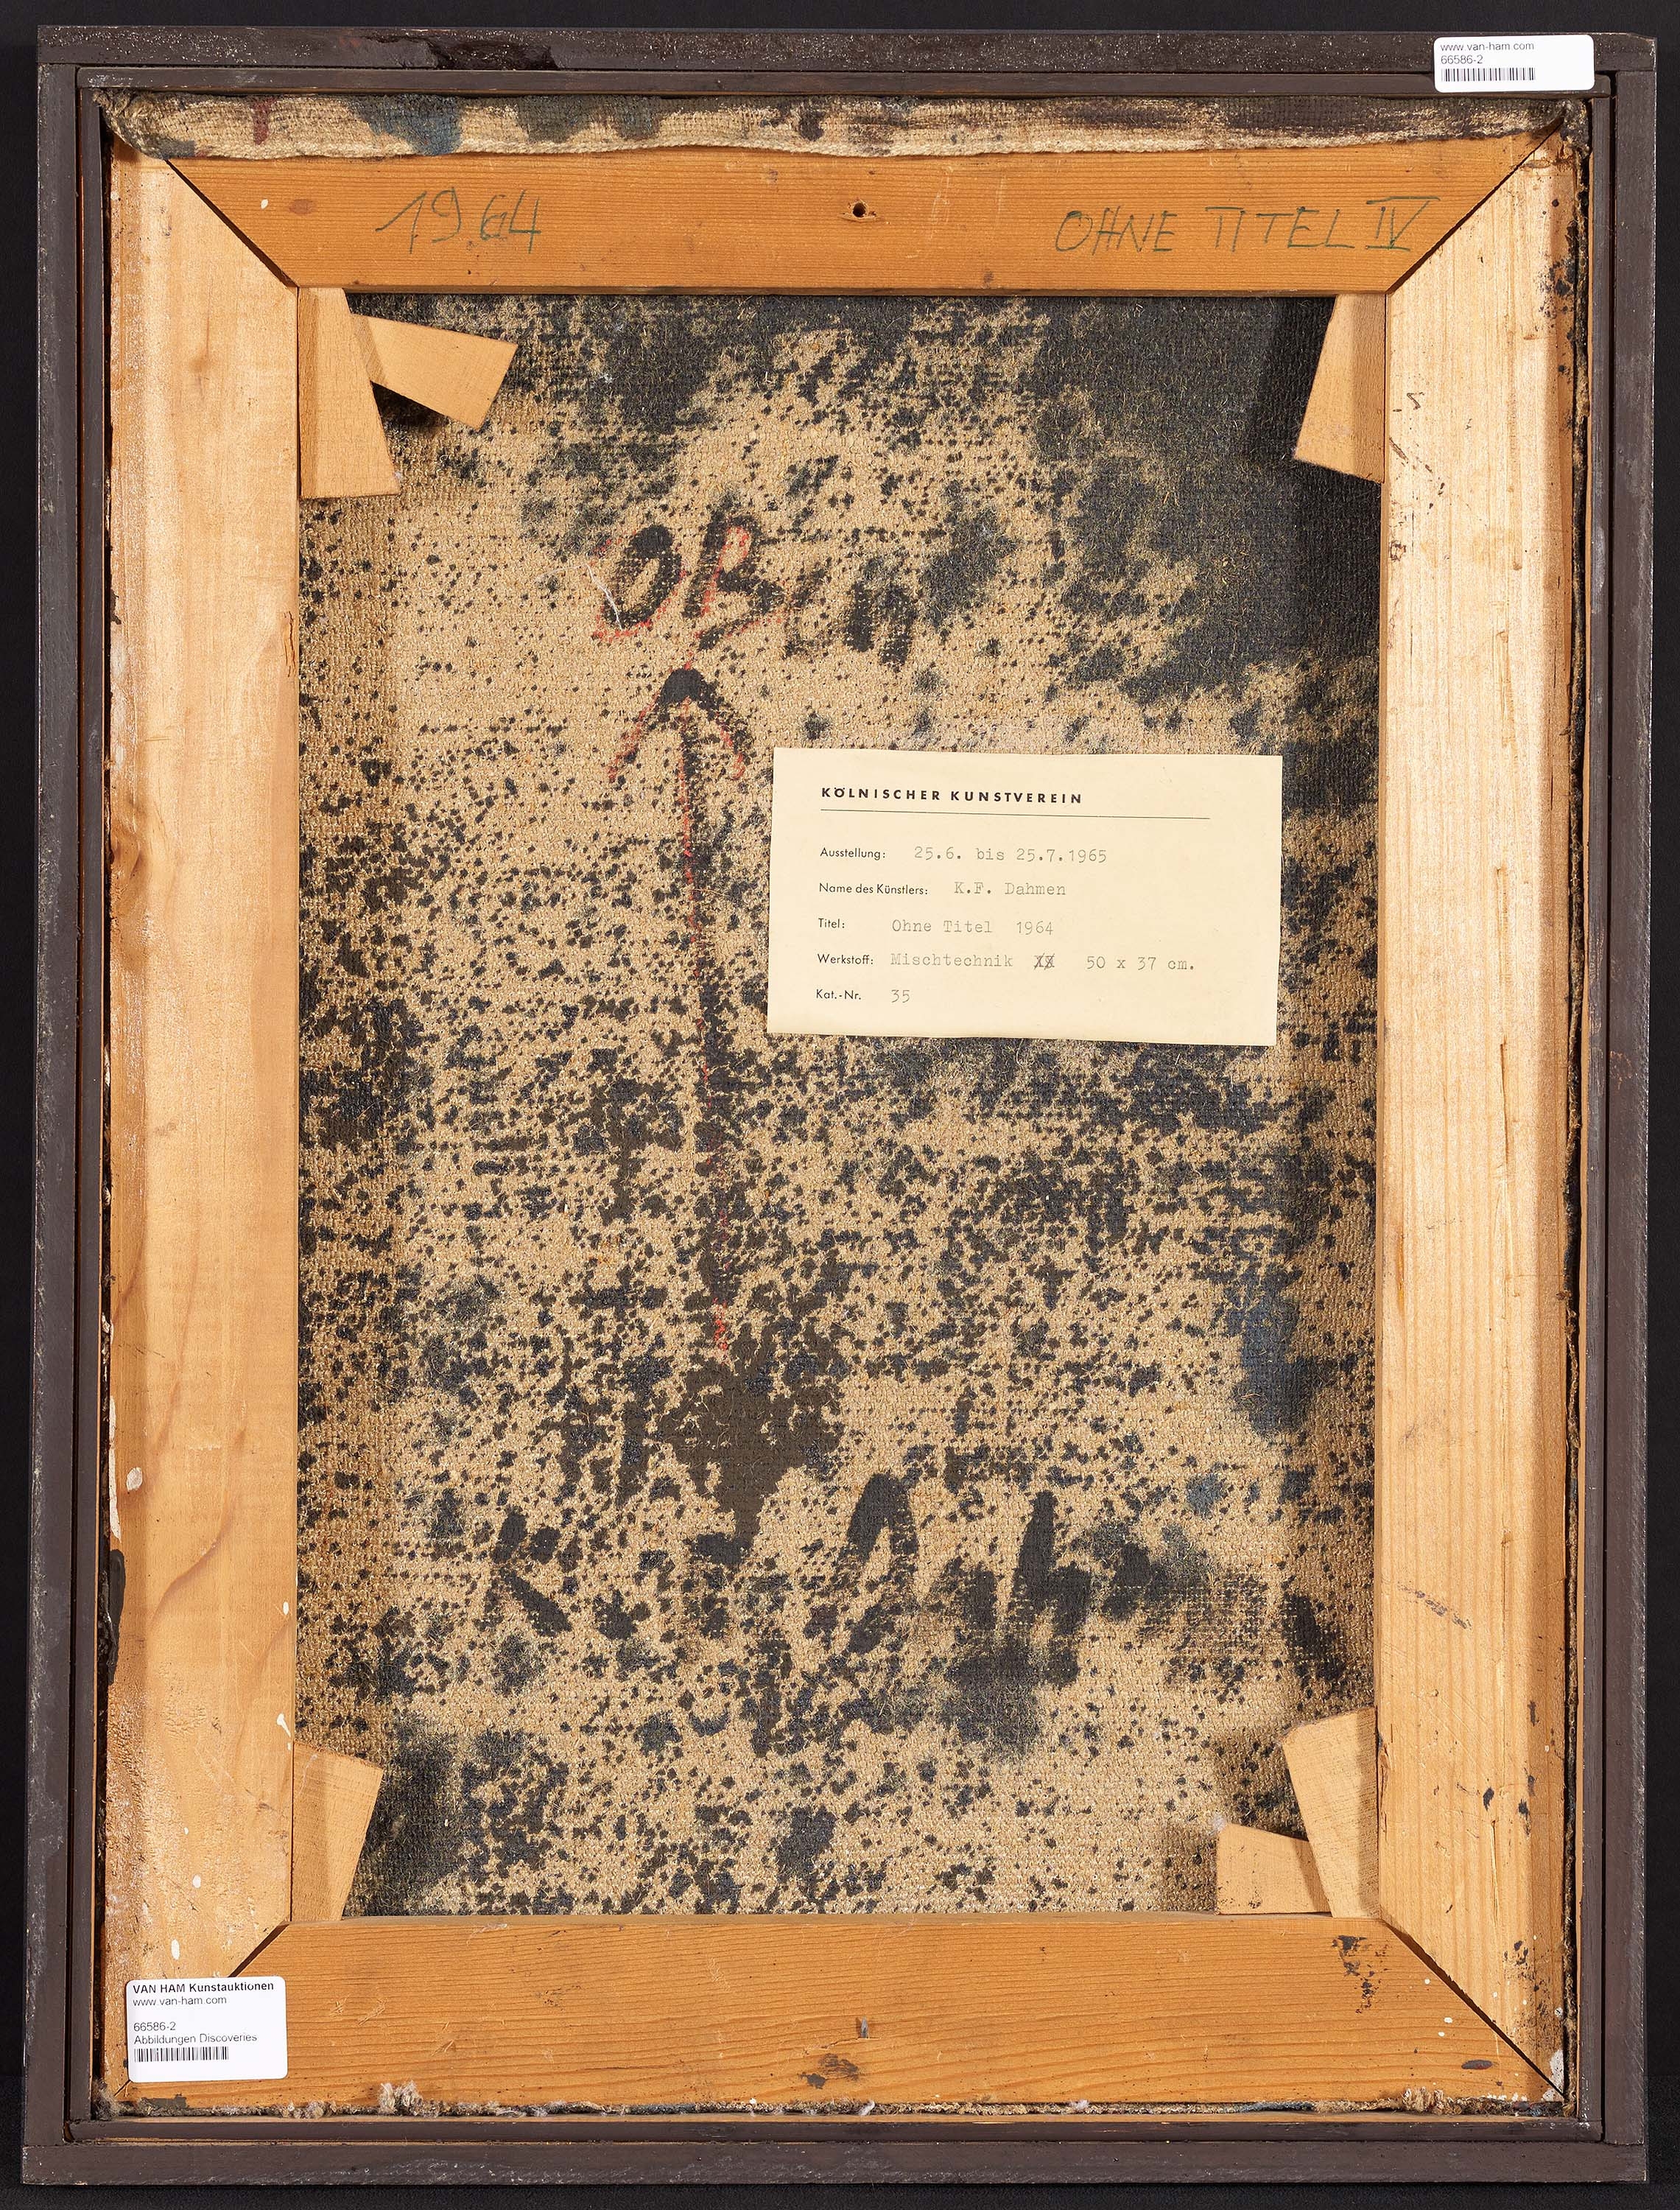 www.van-ham.com
66586-2
1964 OHNE TITEL IV
OBEN
KÖLNISCHER KUNSTVEREIN
Ausstellung: 25.6. bis 25.7.1965
Name des Künstlers: K.F. Dahmen
Titel: Ohne Titel 1964
Werkstoff: Mischtechnik 50 x 37 cm.
Kat.-Nr. 35
VAN HAM Kunstauktionen
www.van-ham.com
66586-2
Abbildungen Discoveries